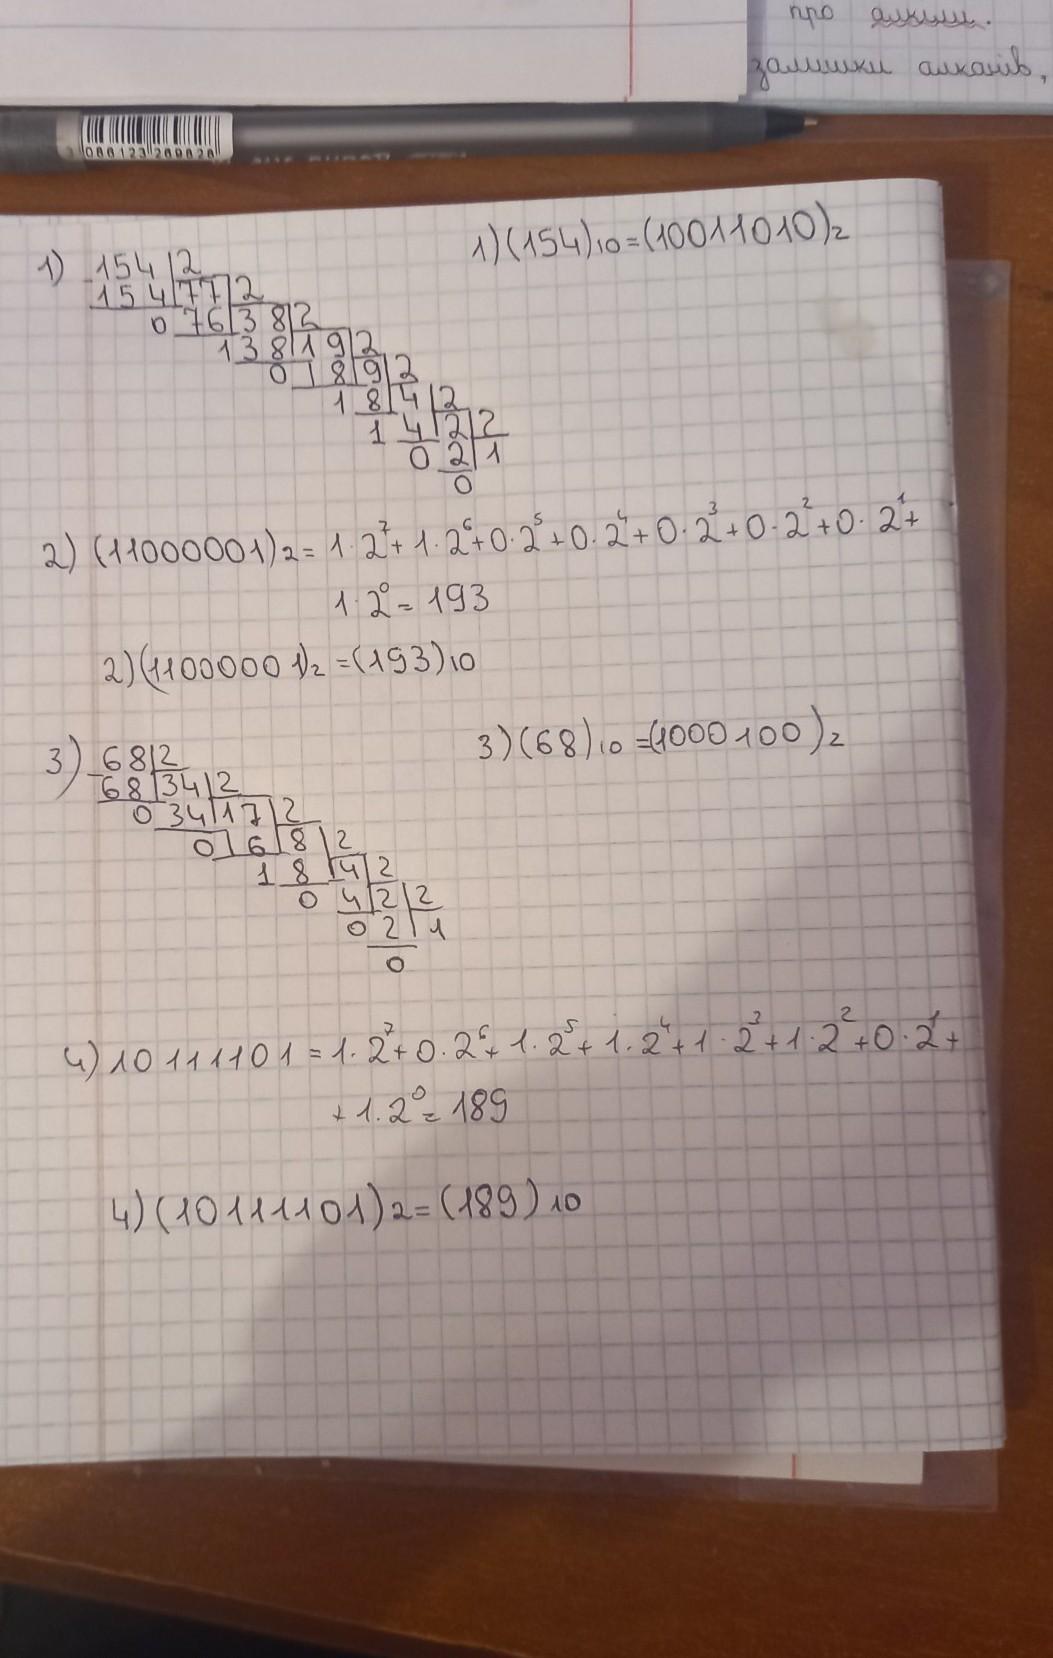 про
залишки алканів,
3 086123 269626
1) 154 2
154 77 2
0 76 38 2
1 38 19 2
0 18 9 2
1 8 4 2
1 4 2 2
0 2 1
0
1) (154)10 = (10011010)2
2) (11000001)2 = 1·2⁷ + 1·2⁶ + 0·2⁵ + 0·2⁴ + 0·2³ + 0·2² + 0·2¹ +
1·2⁰ = 193
2) (11000001)2 = (193)10
3) 68 2
68 34 2
0 34 17 2
0 16 8 2
1 8 4 2
0 4 2 2
0 2 1
0
3) (68)10 = (1000100)2
4) 10111101 = 1·2⁷ + 0·2⁶ + 1·2⁵ + 1·2⁴ + 1·2³ + 1·2² + 0·2¹ +
+ 1·2⁰ = 189
4) (10111101)2 = (189)10